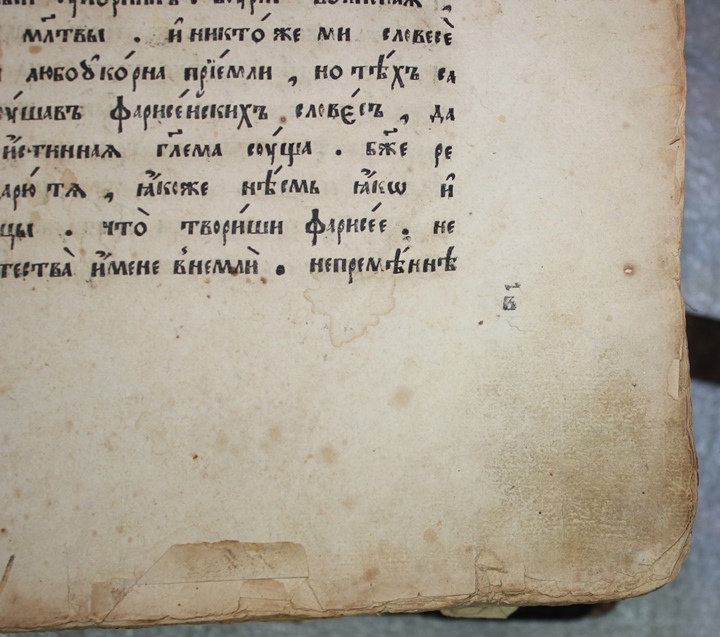 мл҃твы . и҆никто́же ми словесѐ
любоꙋ҆ко́рна прїе́мли , но тѣ́хъ са
фарисе́йскихъ слове́съ , да
и҆стиннаѧ гл҃ема соу́ща . бж҃е ре
ꙗ҆́коже нѣ́смь ꙗ҆́кѡ и҆
. что̀ твори́ши фарисе́е . не
и҆́мене в̾немлѝ . непремѣ́ннѣ
в҃і